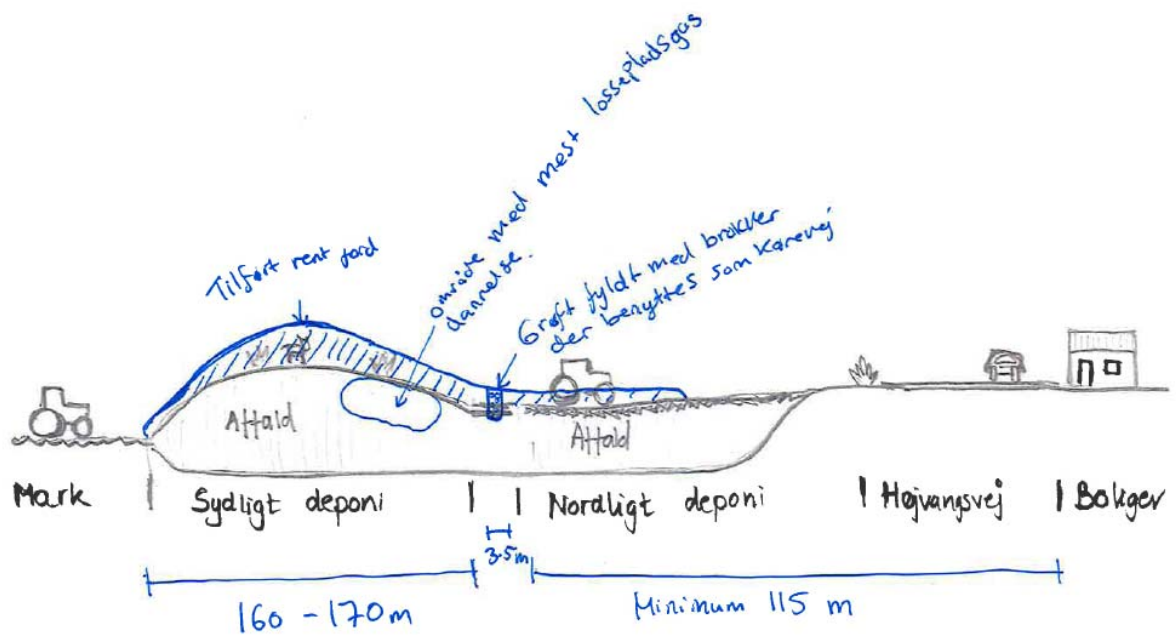 område med mest lossepladsgas
dannelse.
Tilført rent jord
Grøft fyldt med brokker
der benyttes som kørevej
Affald
Affald
Mark
Sydligt deponi
Nordligt deponi
Højvangsvej
Boliger
3.5m
160-170m
Minimum 115 m